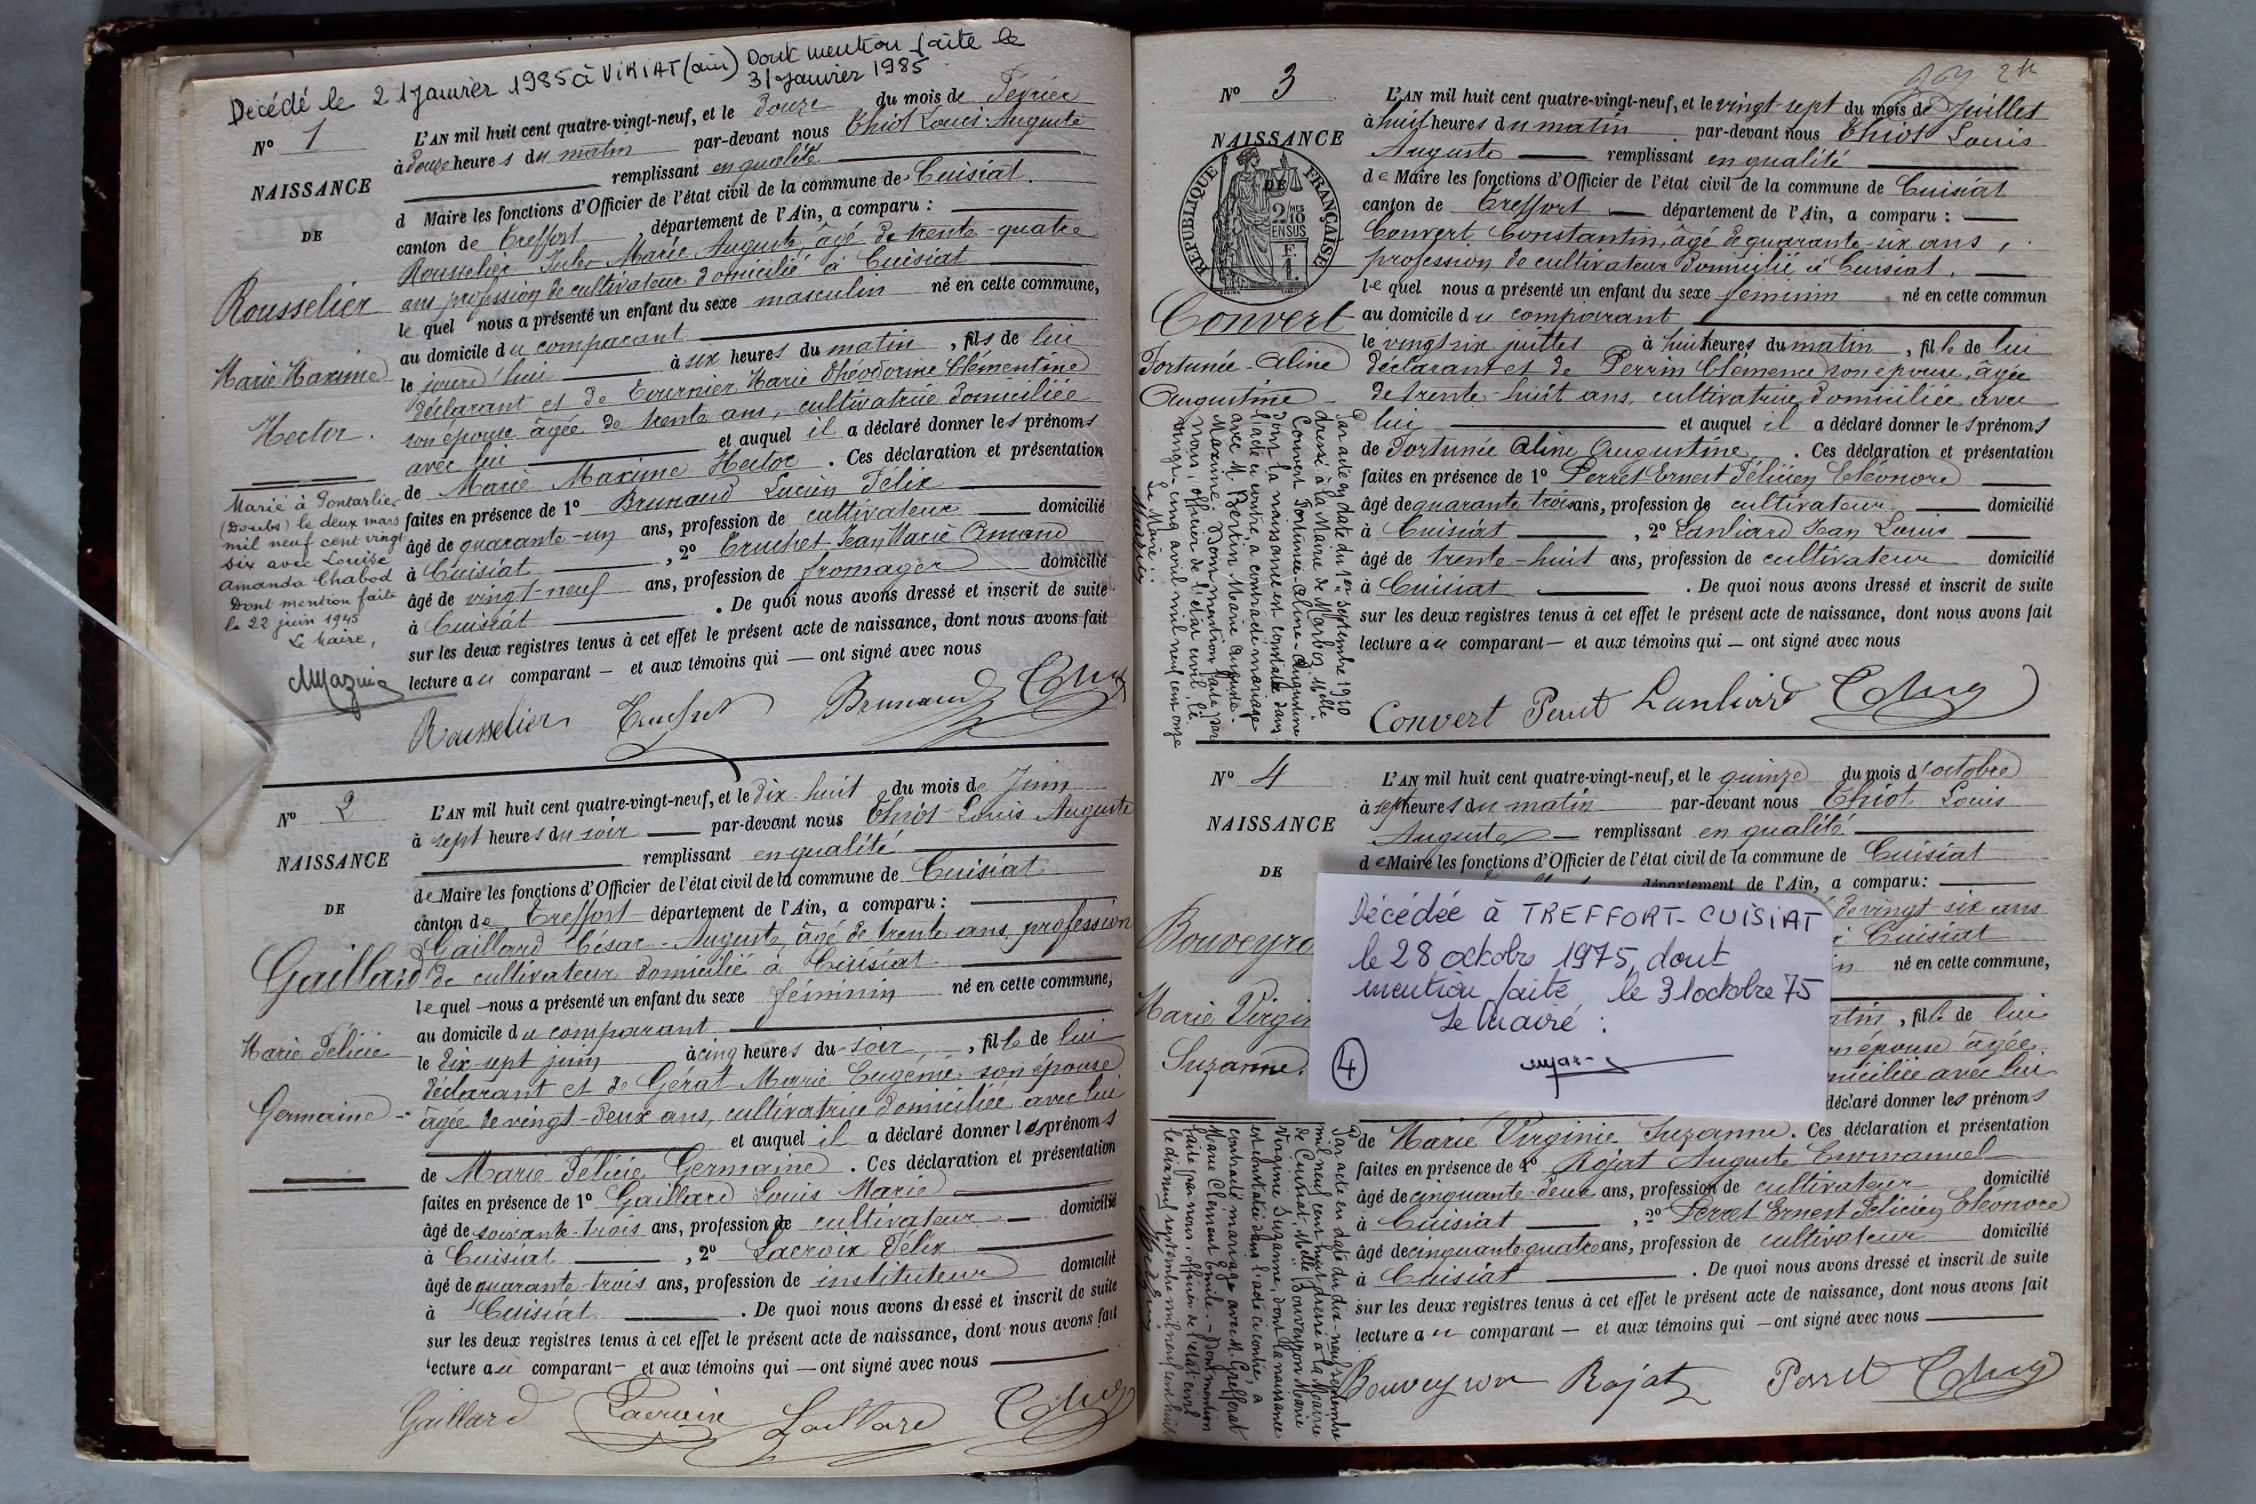 Decédé le 21 Janvier 1985 à VIRIAT (ain) Dont mention faite le
31 Janvier 1985
Nº 1
NAISSANCE
DE
Rousselier
Marie Maxime
Hector.
Marié à Pontarlier
(Doubs) le deux mars
mil neuf cent vingt
six avec Louise
Amanda Chabod
Dont mention faite
le 22 juin 1945
Le Maire,
L'AN mil huit cent quatre-vingt-neuf, et le Douze du mois de Février
à Douze heures du matin par-devant nous Thiot Louis Auguste
remplissant en qualité
d Maire les fonctions d'Officier de l'état civil de la commune de Cuisiat.
canton de Treffort, département de l'Ain, a comparu :
Rousselier Jules Marie Auguste, âgé de trente-quatre
ans profession de cultivateur domicilié à Cuisiat
le quel nous a présenté un enfant du sexe masculin né en cette commune,
au domicile du comparant
le jourd'hui à six heures du matin, fils de lui
déclarant et de Tournier Marie Théodorine Clémentine
son épouse âgée de trente ans, cultivatrice domiciliée
avec lui et auquel il a déclaré donner les prénoms
de Marie Maxime Hector. Ces déclaration et présentation
faites en présence de 1º Brunaud Lucien Félix
âgé de quarante-un ans, profession de cultivateur domicilié
à Cuisiat, 2º Truchet Jean Marie Amand
âgé de vingt-neuf ans, profession de fromager domicilié
à Cuisiat. De quoi nous avons dressé et inscrit de suite
sur les deux registres tenus à cet effet le présent acte de naissance, dont nous avons fait
lecture au comparant — et aux témoins qui — ont signé avec nous
Rousselier Truchet Brunaud
Nº 2
NAISSANCE
DE
Gaillard
Marie Félicie
Germaine
L'AN mil huit cent quatre-vingt-neuf, et le dix-huit du mois de Juin
à sept heures du soir par-devant nous Thiot Louis Auguste
remplissant en qualité
de Maire les fonctions d'Officier de l'état civil de la commune de Cuisiat
canton de Treffort département de l'Ain, a comparu :
Gaillard César-Auguste, âgé de trente ans, profession
de cultivateur domicilié à Cuisiat
le quel nous a présenté un enfant du sexe féminin né en cette commune,
au domicile du comparant
le dix sept juin à cinq heures du soir, fille de lui
déclarant et de Gérat Marie Eugénie son épouse
âgée de vingt-deux ans, cultivatrice domiciliée avec lui
et auquel il a déclaré donner les prénoms
de Marie Félicie Germaine. Ces déclaration et présentation
faites en présence de 1º Gaillard Louis Marie
âgé de soixante-trois ans, profession de cultivateur domicilié
à Cuisiat, 2º Lacroix Félix
âgé de quarante-trois ans, profession de instituteur domicilié
à Cuisiat. De quoi nous avons dressé et inscrit de suite
sur les deux registres tenus à cet effet le présent acte de naissance, dont nous avons fait
lecture au comparant — et aux témoins qui — ont signé avec nous
Gaillard Lacroix Gaillard
Nº 3
NAISSANCE
DE
REPUBLIQUE FRANÇAISE
2/10 MES
EN SUS
F.
1.
Convert
Fortunée-Aline
Augustine
Par acte en date du 1er septembre 1910
dressé à la Mairie de Marboz, Melle
Convert Fortunée-Aline-Augustine
dont la naissance est constatée dans
l'acte ci contre, a contracté mariage
avec M. Bertin Marie Auguste
Maxime. Dont mention faite par
nous, officier de l'état civil, le
vingt cinq avril mil neuf cent onze
Le Maire :
L'AN mil huit cent quatre-vingt-neuf, et le vingt-sept du mois de Juillet
à huit heures du matin par-devant nous Thiot Louis
Auguste remplissant en qualité
de Maire les fonctions d'Officier de l'état civil de la commune de Cuisiat
canton de Treffort département de l'Ain, a comparu :
Convert Constantin, âgé de quarante-six ans,
profession de cultivateur domicilié à Cuisiat.
le quel nous a présenté un enfant du sexe féminin né en cette commun
au domicile du comparant
le vingt six juillet à huit heures du matin, fille de lui
déclarant et de Perrin Clémence son épouse, âgée
de trente-huit ans, cultivatrice domiciliée avec
lui et auquel il a déclaré donner les prénoms
de Fortunée Aline Augustine. Ces déclaration et présentation
faites en présence de 1º Perret Ernest Félicien Eléonore
âgé de quarante trois ans, profession de cultivateur domicilié
à Cuisiat, 2º Lanliard Jean Louis
âgé de trente-huit ans, profession de cultivateur domicilié
à Cuisiat. De quoi nous avons dressé et inscrit de suite
sur les deux registres tenus à cet effet le présent acte de naissance, dont nous avons fait
lecture au comparant — et aux témoins qui — ont signé avec nous
Convert Perret Lanliard
Nº 4
NAISSANCE
DE
Bouveyro
Marie Virgin
Suzanne.
Par acte en date du dix-neuf septembre
mil neuf cent huit dressé à la Mairie
de Cuisiat, Melle Bouveyron Marie
Virginie Suzanne, dont la naissance
est constatée dans l'acte ci contre, a
contracté mariage avec M. Grefferat
Marie Clément Emile. Dont mention
faite par nous, officier de l'état civil
le dix neuf septembre mil neuf cent huit
L'AN mil huit cent quatre-vingt-neuf, et le quinze du mois d'octobre
à sept heures du matin par-devant nous Thiot Louis
Auguste remplissant en qualité
de Maire les fonctions d'Officier de l'état civil de la commune de Cuisiat
département de l'Ain, a comparu :
de vingt-six ans
à Cuisiat
né en cette commune,
atin, fille de lui
on épouse âgée
miciliée avec lui
déclaré donner les prénoms
Décédée à TREFFORT-CUISIAT
le 28 octobre 1975, dont
mention faite le 31 octobre 75
Le Maire :
4
de Marie Virginie Suzanne. Ces déclaration et présentation
faites en présence de 1º Rojat Auguste Emmanuel
âgé de cinquante-deux ans, profession de cultivateur domicilié
à Cuisiat, 2º Perret Ernest Félicien Eléonore
âgé de cinquante quatre ans, profession de cultivateur domicilié
à Cuisiat. De quoi nous avons dressé et inscrit de suite
sur les deux registres tenus à cet effet le présent acte de naissance, dont nous avons fait
lecture au comparant — et aux témoins qui — ont signé avec nous
Bouveyron Rojat Perret